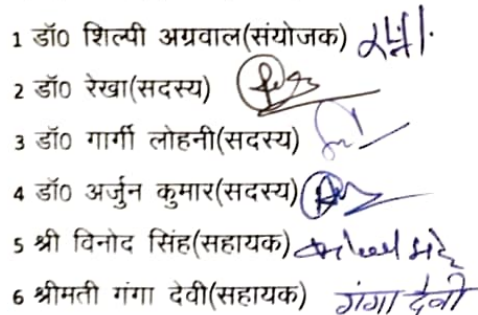 1 डॉ0 शिल्पी अग्रवाल(संयोजक)
2 डॉ0 रेखा(सदस्य)
3 डॉ0 गार्गी लोहनी(सदस्य)
4 डॉ0 अर्जुन कुमार(सदस्य)
5 श्री विनोद सिंह(सहायक)
6 श्रीमती गंगा देवी(सहायक) गंगा देवी